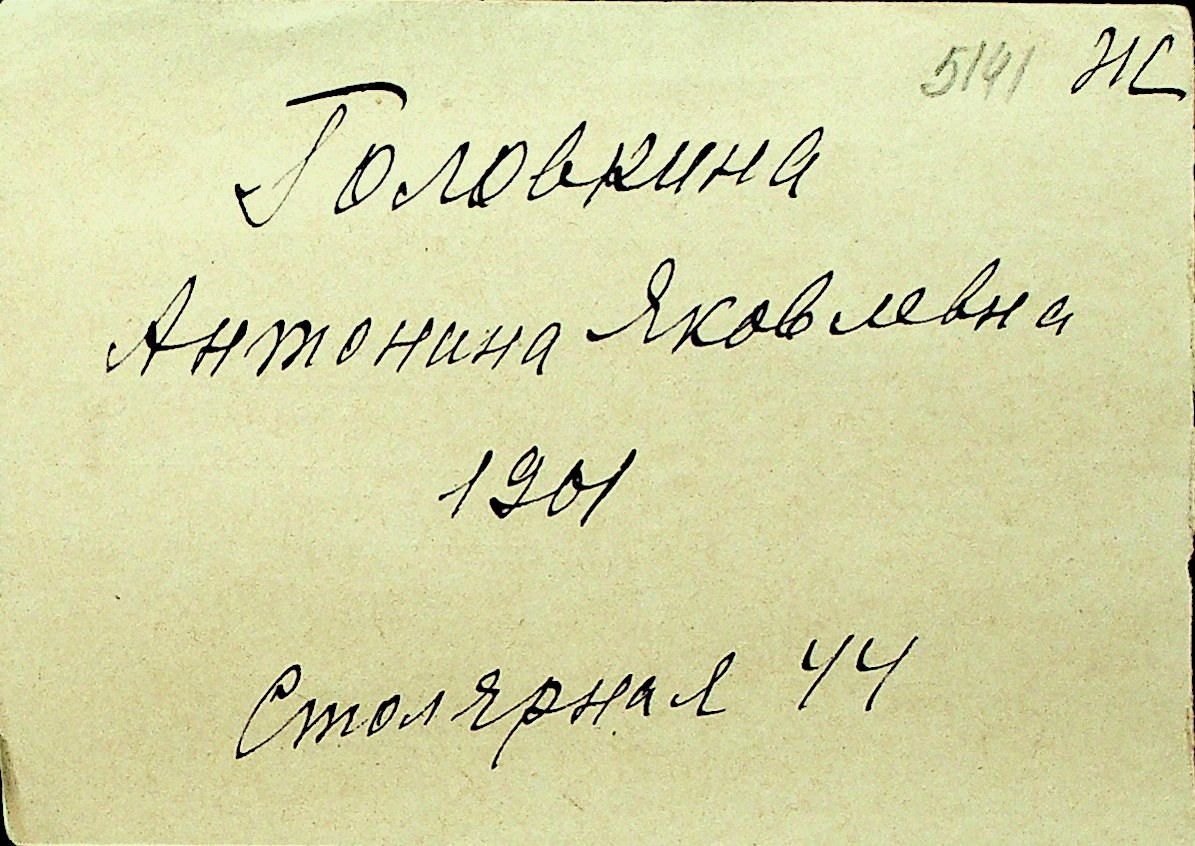 5141
Головкина
Антонина Яковлевна
1901
Столярная 44